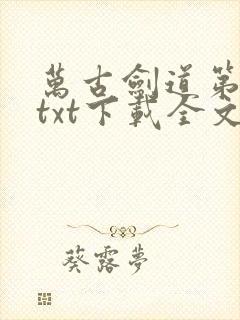 萬古劍道第
txt下載全文
葵露夢